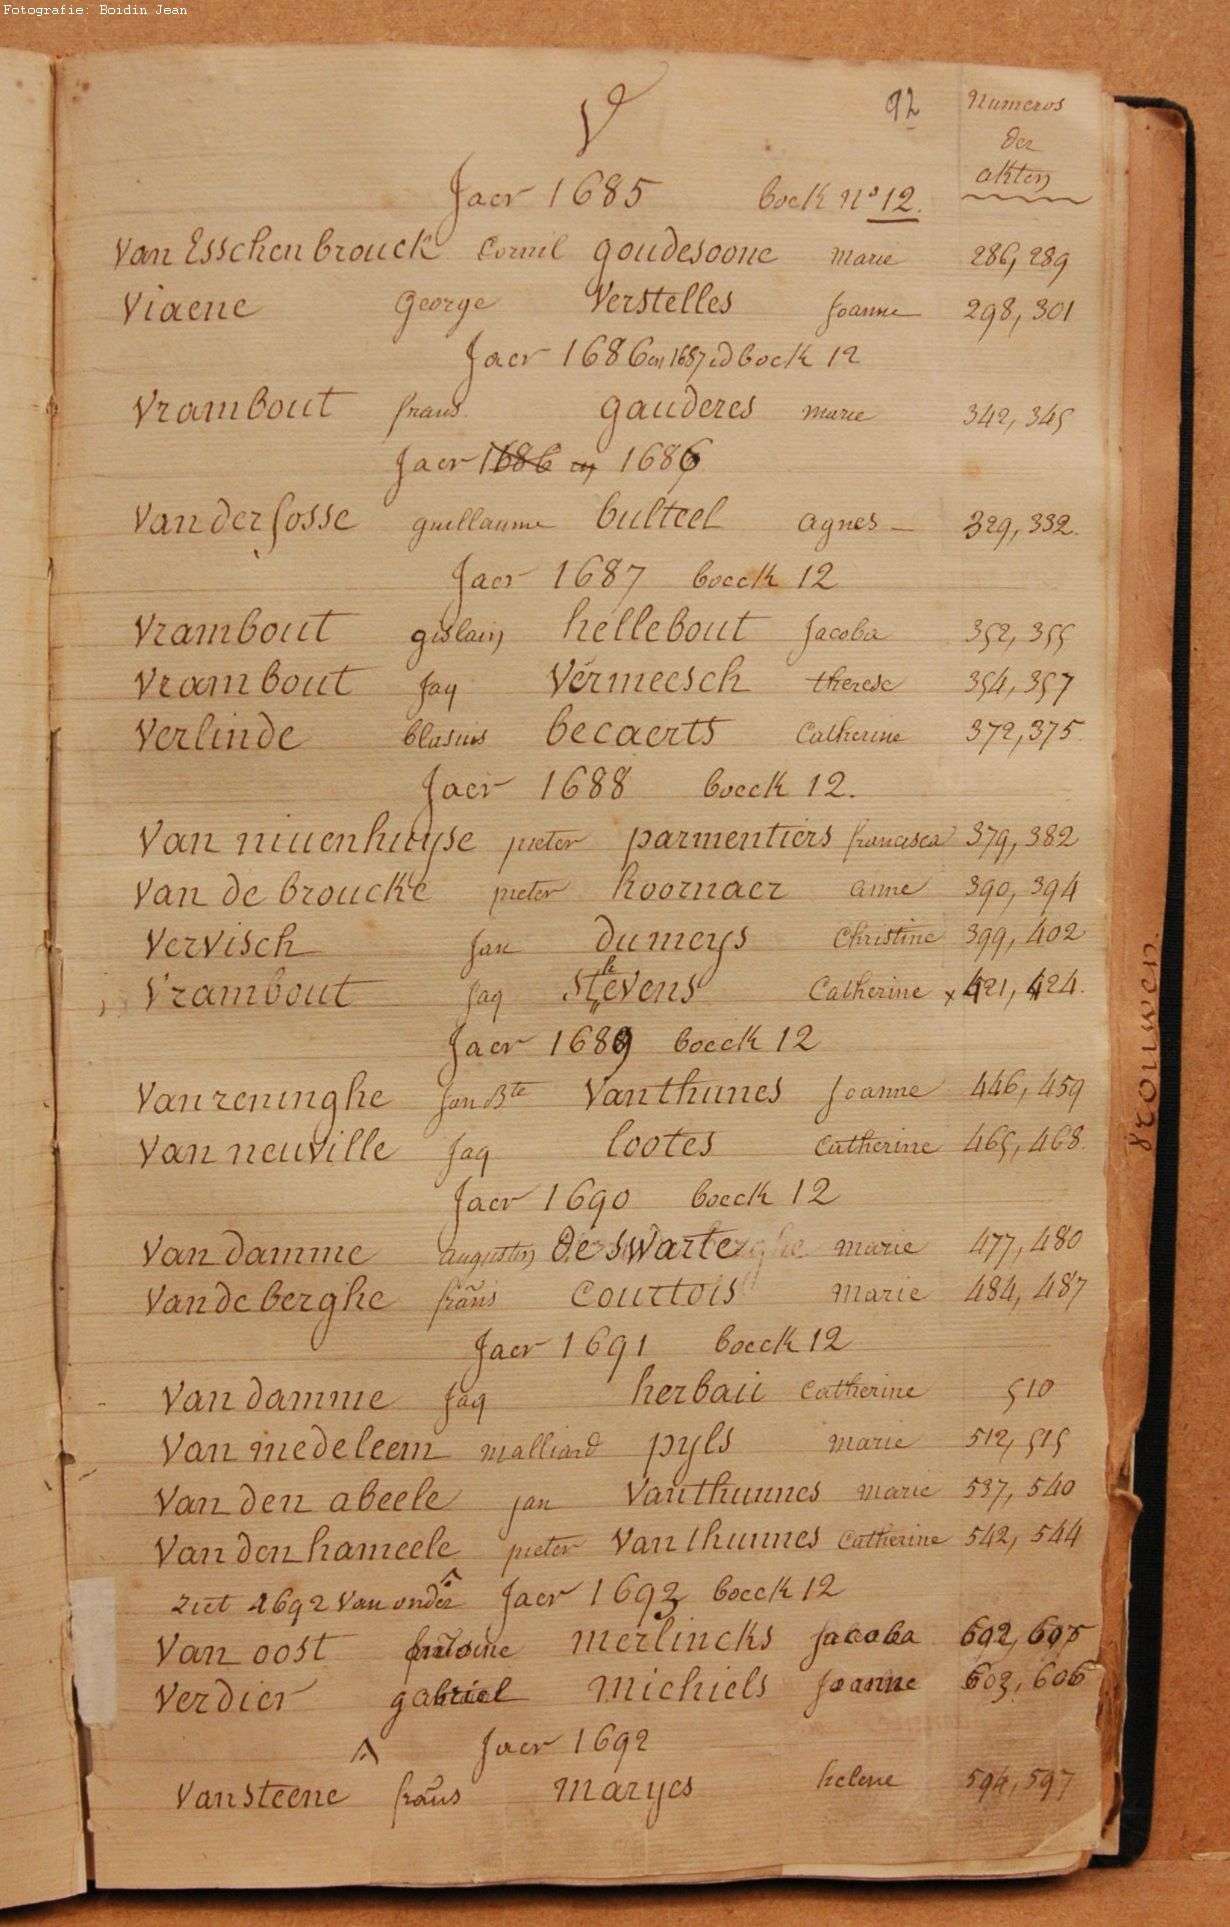 Fotografie: Boidin Jean
V 92 Numeros
der
akten
Jaer 1685 boek No 12.
Van Esschenbrouck Cornil goudesoone marie 286, 289
Viaene George Verstelles Joanne 298, 301
Jaer 1686 en 1687 id boek 12
Vrambout frans gauderes marie 342, 345
Jaer 1686 en 1686
Van der fosse guillaume bulteel agnes 329, 332.
Jaer 1687 boeck 12
Vrambout gislain hellebout Jacoba 352, 355
Vrambout Jaq Vermeesch therese 354, 357
Verlinde blasius becaerts Catherine 372, 375.
Jaer 1688 boeck 12.
Van niuenhuyse pieter parmentiers francisca 379, 382
Van de broucke pieter koornaer anne 390, 394
Vervisch Jan dumeys Christine 399, 402
Vrambout Jaq Sthevens Catherine x 421, 424.
Jaer 1689 boeck 12
Van reninghe Jan Bte Vanthunes Joanne 446, 459
Van neuville Jaq lootes Catherine 465, 468.
Jaer 1690 boeck 12
Van damme augustin de swarte marie 477, 480
Van de berghe frans Courtois marie 484, 487
Jaer 1691 boeck 12
Van damme Jaq herbaii Catherine 510
Van medeleem malliard pyls marie 512, 515
Van den abeele jan Vanthunnes marie 537, 540
Van den hameele pieter Vanthunnes Catherine 542, 544
ziet 1692 Van onder Jaer 1693 boeck 12
Van oost antoine merlincks Jacoba 692, 695
Verdier gabriel michiels Joanne 603, 606
Jaer 1692
Van steene frans maryes helene 594, 597
vrouwen.